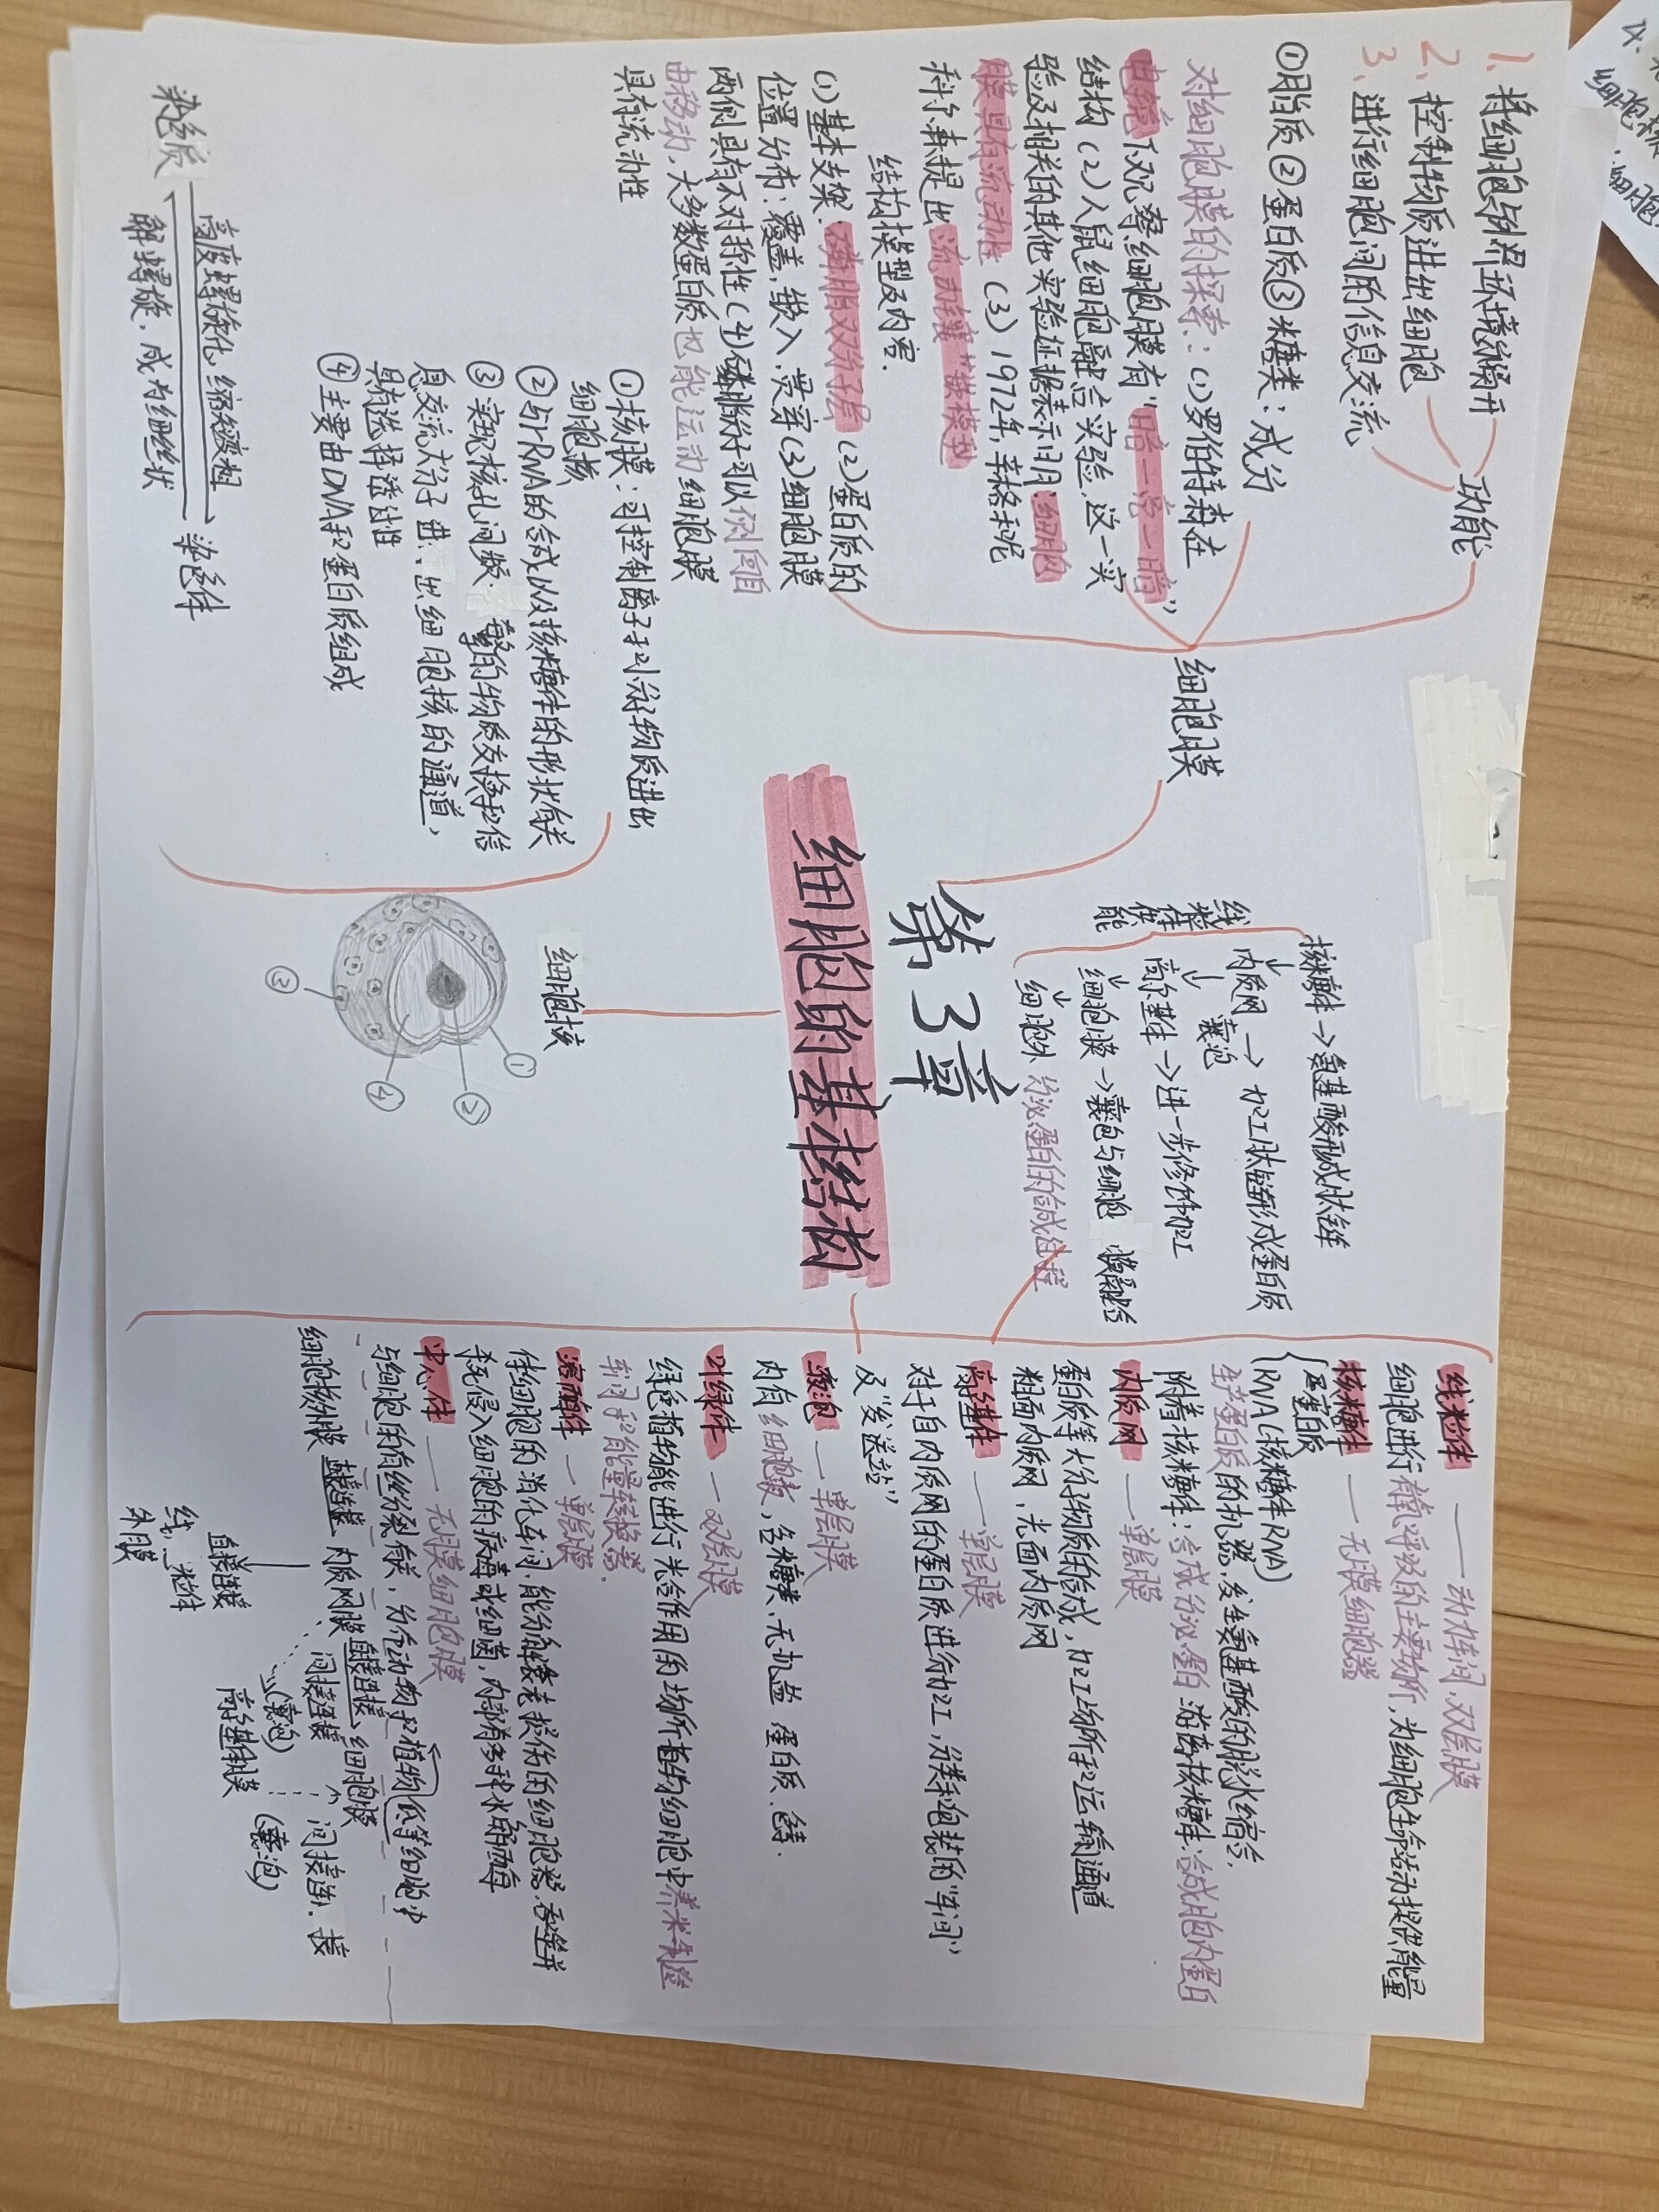 1. 将细胞与外界环境分隔开
2. 控制物质进出细胞
3. 进行细胞间的信息交流
功能
①脂质②蛋白质③糖类：成分
对细胞膜的探索：(1)罗伯特森在
电镜下观察细胞膜有“暗一亮一暗”
结构 (2)人鼠细胞融合实验，这一实
验及相关的其他实验证据表示明：细胞
膜具有流动性 (3) 1972年，辛格和尼
科尔森提出流动镶嵌模型
结构模型及内容.
(1)基本支架：磷脂双分子层 (2)蛋白质的
位置分布：覆盖，嵌入，贯穿(3)细胞膜
两侧具有不对称性(4)磷脂分子可以侧向自
由移动，大多数蛋白质也能运动 细胞膜
具有流动性
细胞膜
第3章
细胞的基本结构
细胞核
①核膜：可控制离子和小分子物质进出
细胞核
②与rRNA的合成以及核糖体的形状有关
③实现核孔间频.繁的物质交换和信
息交流大分子 进.出细胞核的通道，
具有选择透过性
④主要由DNA和蛋白质组成
染色质
高度螺旋化，缩短变粗
解螺旋，成为细丝状
染色体
①
②
③
④
线粒体供能
核糖体→氨基酸形成肽链
↓
内质网 → 加工肽链形成蛋白质
↓ 囊泡
高尔基体 →进一步修饰加工
↓
细胞膜→囊包与细胞.膜融合
↓
细胞外
分泌蛋白的合成过程
线粒体——动力车间，双层膜
细胞进行有氧呼吸的主要场所，为细胞生命活动提供能量
核糖体——无膜细胞器
蛋白质
RNA(核糖体RNA)
生产蛋白质的机器，发生氨基酸的脱水缩合，
附着核糖体：合成分泌蛋白 游离核糖体：合成胞内蛋白
内质网——单层膜
蛋白质等大分子物质的合成，加工场所和运输通道
粗面内质网，光面内质网
高尔基体——单层膜
对于自内质网的蛋白质进行加工，分类和包装的“车间”
及“发送站”
液泡——单层膜
内有细胞液，含糖类.无机盐 蛋白质.色素.
叶绿体——双层膜
绿色植物能进行光合作用的场所植物细胞中养米制造
车间和能量转换器.
溶酶体—单层膜
件细胞的消化车间，能分解衰老损伤的细胞器，吞噬并
杀死侵入细胞的病毒或细菌，内部有多种水解酶
中心体——无膜细胞膜
与细胞的有丝分裂有关，分布动物和植物低等细胞中
细胞核外膜 直接连接 内质网膜 直接连接 细胞膜
直接连接
线.粒体
外膜
间接连接
(囊泡)
高尔基体膜
间接连.接
(囊泡)